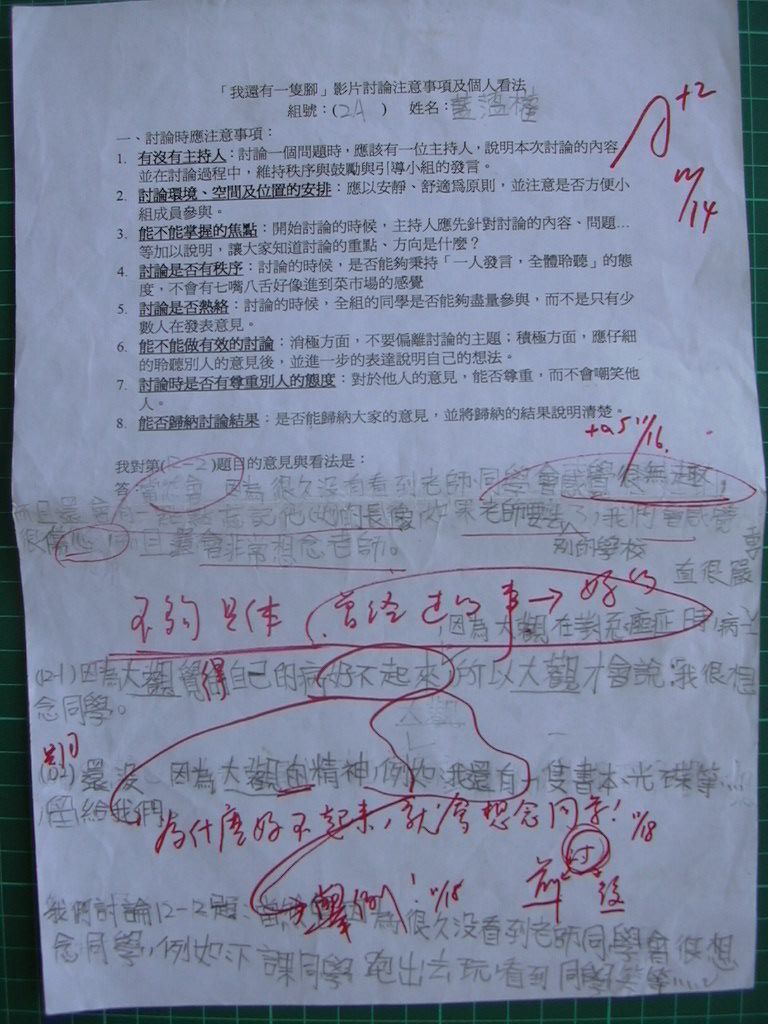 「我還有一隻腳」影片討論注意事項及個人看法
組號：(12A ) 姓名：
A+2
11/14
一、討論時應注意事項：
1. 有沒有主持人：討論一個問題時，應該有一位主持人，說明本次討論的內容
並在討論過程中，維持秩序與鼓勵與引導小組的發言。
2. 討論環境、空間及位置的安排：應以安靜、舒適為原則，並注意是否方便小
組成員參與。
3. 能不能掌握的焦點：開始討論的時候，主持人應先針對討論的內容、問題…
等加以說明，讓大家知道討論的重點、方向是什麼？
4. 討論是否有秩序：討論的時候，是否能夠秉持「一人發言，全體聆聽」的態
度，不會有七嘴八舌好像進到菜市場的感覺
5. 討論是否熱絡：討論的時候，全組的同學是否能夠盡量參與，而不是只有少
數人在發表意見。
6. 能不能做有效的討論：消極方面，不要偏離討論的主題；積極方面，應仔細
的聆聽別人的意見後，並進一步的表達說明自己的想法。
7. 討論時是否有尊重別人的態度：對於他人的意見，能否尊重，而不會嘲笑他
人。
8. 能否歸納討論結果：是否能歸納大家的意見，並將歸納的結果說明清楚。
+0.5 11/16
我對第(12-2)題目的意見與看法是：
答：因為很久沒有看到老師、同學會感覺很無趣，
而且還會忘記他(她)的長像,如果老師要去了,我們會感覺
別的學校
很傷心,而且還會非常想念老師。
直很嚴
不夠具体,曾經過的事→好的
,因為大觀在對惡癌症時,病
(12-1)因為大觀覺得自己的病好不起來,所以大觀才會說:我很想
念同學。
大觀
還沒,因為大觀的精神,例如:我還有一隻書本、光碟等…
,留給我們
為什麼好不起來,就會想念同學! 11/18
舉例! 11/18
我們討論12-2題、因為很久沒看到老師同學會很想
念同學,例如:下課同學跑出去玩看到同學笑等……